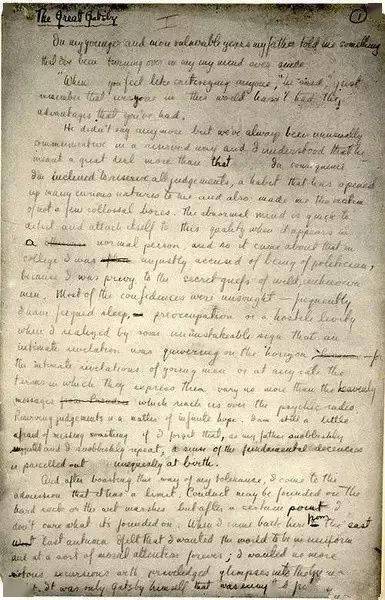 The Great Gatsby
I
1
In my younger and more vulnerable years my father told me something
that I've been turning over in my mind ever since.
"When you feel like criticizing anyone," he said, "just
remember that everyone in this world hasn't had the
advantages that you've had.
He didn't say any more but we've always been unusually
communicative in a reserved way and I understood that he
meant a great deal more than that. In consequence
I'm inclined to reserve all judgements, a habit that has opened
up many curious natures to me and also made me the victim
of not a few collossal bores. The abnormal mind is quick to
detect and attach itself to this quality when it appears in
a normal person, and so it came about that in
college I was unjustly accused of being a politician,
because I was privy to the secret griefs of wild, unknown
men. Most of the confidences were unsought — frequently
I have feigned sleep, preoccupation or a hostile levity
when I realized by some unmistakeable sign that an
intimate revelation was quivering on the horizon — for
the intimate revelations of young men or at any rate the
terms in which they express them vary no more than the heavenly
messages which reach us over the psychic radio.
Reserving judgements is a matter of infinite hope. I am still a little
afraid of missing something if I forget that, as my father snobbishly
and I snobbishly repeat, a sense of the fundamental decencies
is parcelled out unequally at birth.
And after boasting this way of my tolerance, I came to the
admission that it has a limit. Conduct may be founded on the
hard rock or the wet marshes but after a certain point I
don't care what its founded on. When I came back here from the east
last autumn I felt that I wanted the world to be in uniform
and at a sort of moral attention forever; I wanted no more
excursions with priviledged glimpses into the
It was only Gatsby himself that was exempt